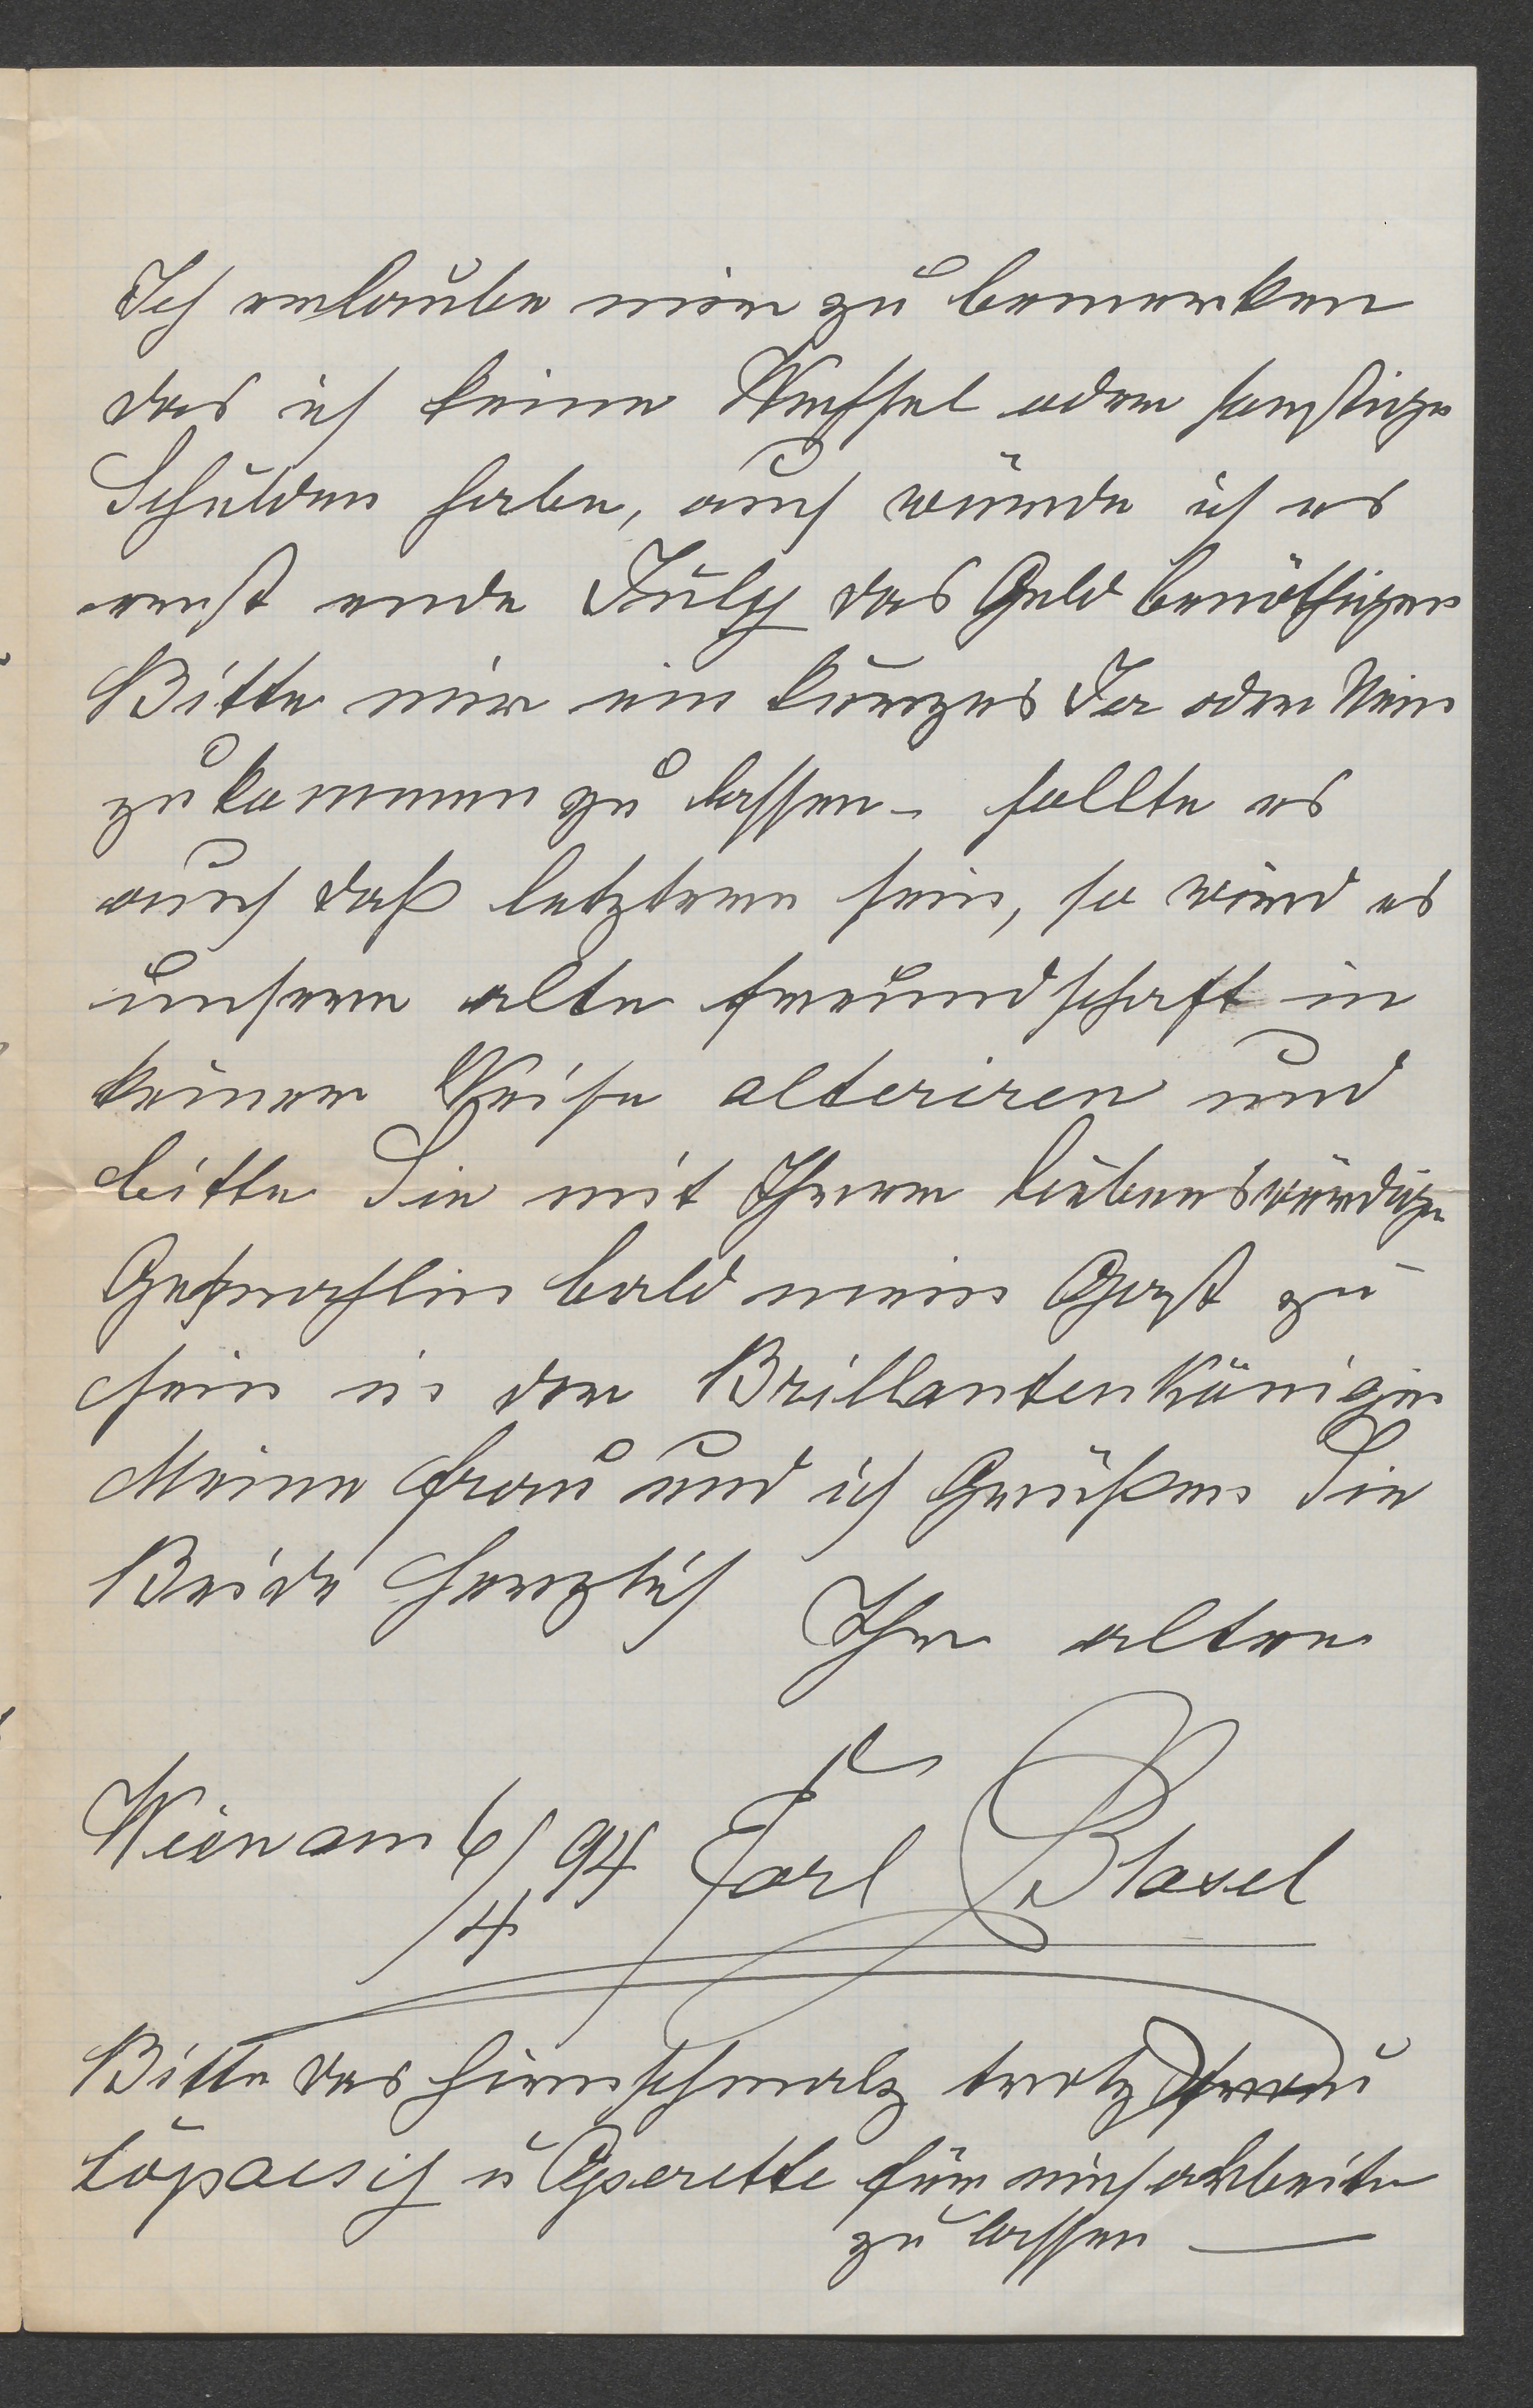 Ich erlaube mir zu bemerken
das ich keine Wechsel oder sonstige
Schulden habe, auch würde ich es
erst ende July das Geld benöthigen
Bitte mir ein kurzes Ja oder Nein
zukommen zu lassen – sollte es
auch daß letztere sein, so wird es
unsere alte Freundschaft in
keiner Weise alteriren und
bitte Sie mit Ihrer liebenswürdigen
Gemahlin bald mein Gast zu
sein in der Brillantenkönigin
Meine Frau und ich Grüßen Sie
Beide Herzlich
Ihr alter
Wien am 6/4 94 Carl Blasel
Bitte das Hirnschmalz trotz
u Operette für mich arbeiten
zu lassen —